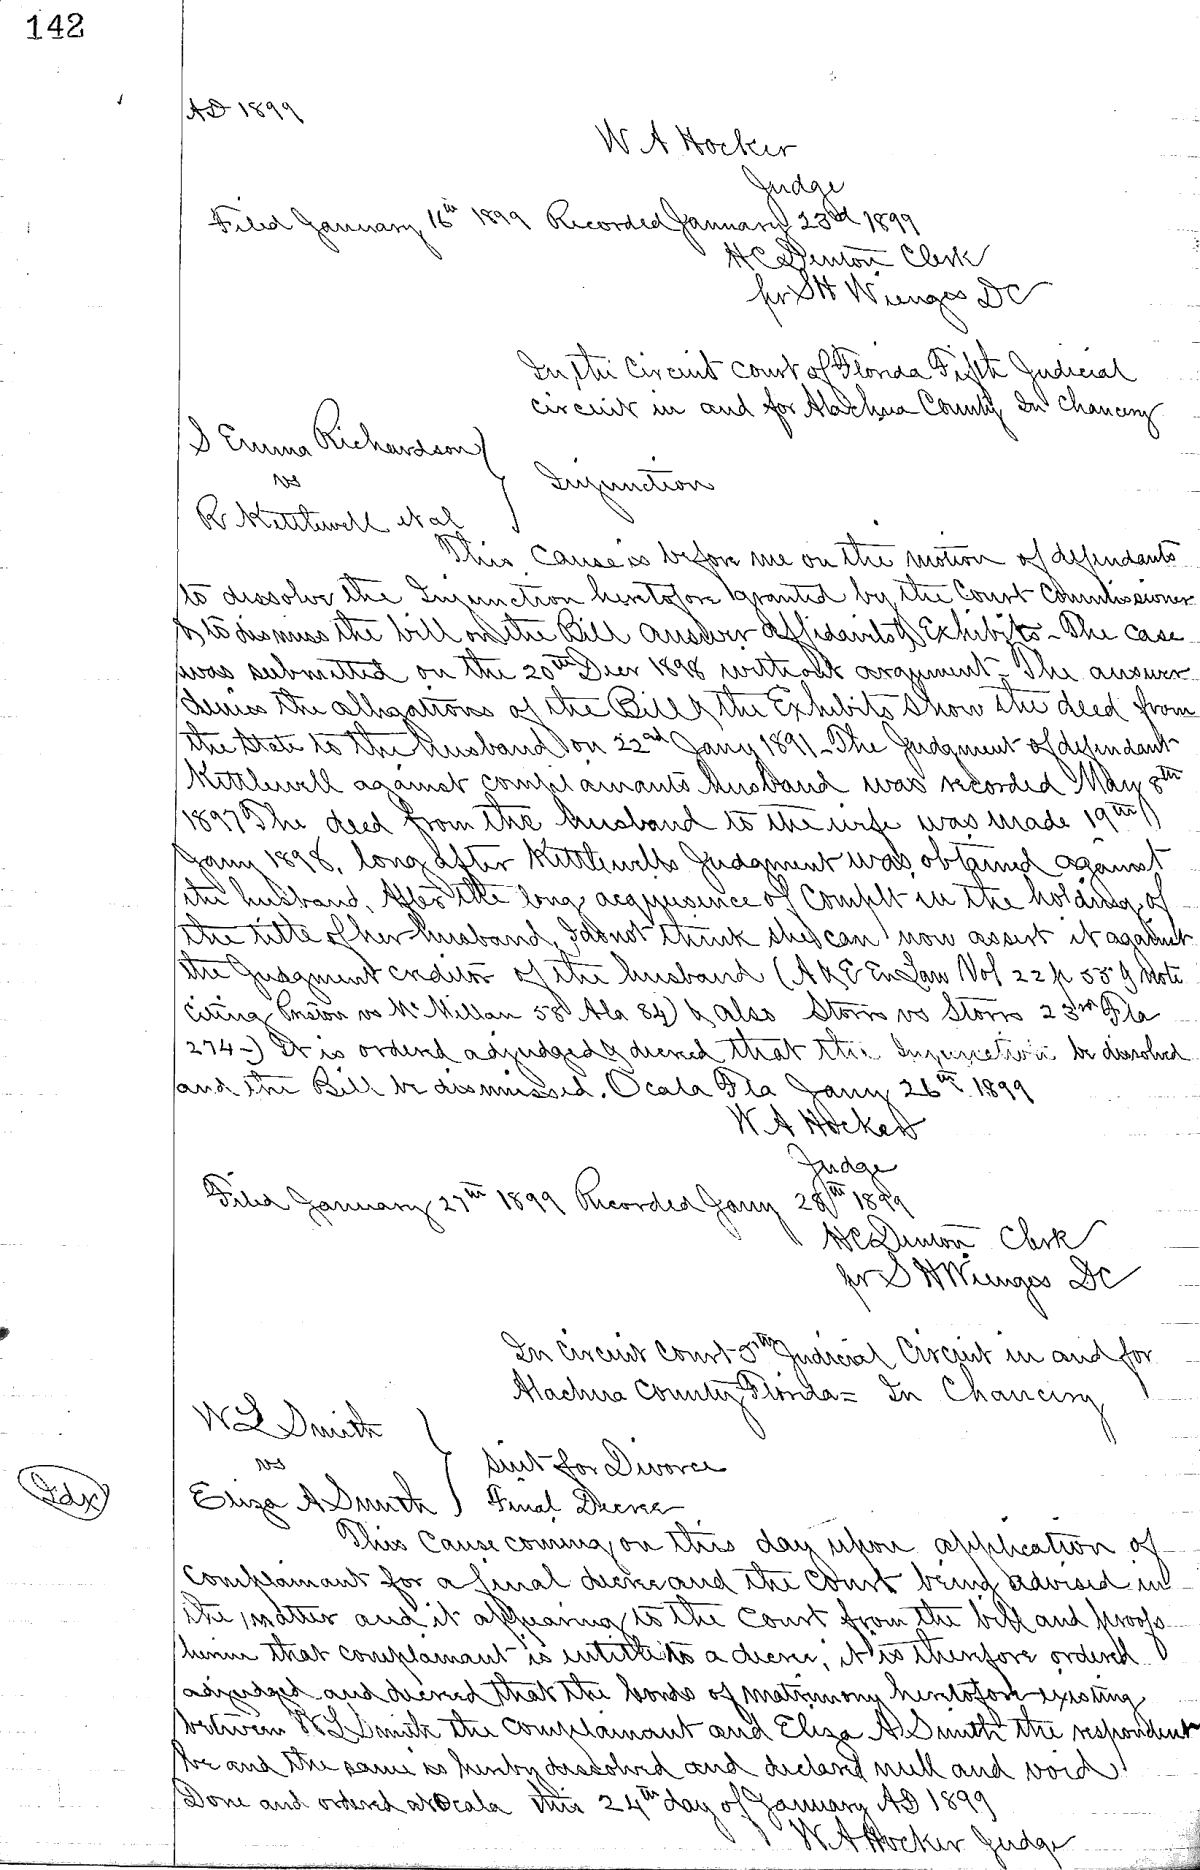 142
AD 1899
W A Hocker
Judge
Filed January 16th 1899 Recorded January 23rd 1899
H C Denton Clerk
pr S H Wienges DC
In the Circuit court of Florida Fifth Judicial
circuit in and for Alachua County In Chancery
S Emma Richardson
vs
Injunction
R Kettlewell et al
This cause is before me on the motion of defendants
to dissolve the Injunction heretofore granted by the Court Commissioner
& to dismiss the bill on the Bill answer affidavits & Exhibits - The case
was submitted on the 20th Decr 1898 without argument - The answer
denies the allegations of the Bill & the Exhibits show the deed from
the State to the husband on 22nd Jany 1891 - The Judgment of defendant
Kettlewell against complainants husband was recorded May 8th
1897 The deed from the husband to the wife was made 19th
Jany 1898, long after Kettlewells Judgment was obtained against
the husband. After the long acquiesence of Complt in the holding of
the title of her husband, I do not think she can now assert it against
the Judgment creditor of the husband (A & E En Law Vol 22 p 55 Note
citing Preston vs McMillan 58 Ala 84) & also Storrs vs Storrs 23rd Fla
274-) It is ordered adjudged & decreed that the Injunction be dissolved
and the Bill be dismissed. Ocala Fla Jany 26th 1899
W A Hocker
Judge
Filed January 27th 1899 Recorded Jany 28th 1899
H C Denton Clerk
pr S H Wienges DC
In Circuit Court 5th Judicial Circuit in and for
Alachua County Florida = In Chancery
W L Smith
vs
suit for Divorce
Idx
Eliza A Smith
Final Decree
This cause coming on this day upon application of
complainant for a final decree and the court being advised in
the matter and it appearing to the court from the bill and proofs
herein that complainant is intitle to a decree, it is therefore ordered
adjudged and decreed that the bonds of matrimony heretofore existing
between W L Smith the complainant and Eliza A Smith the respondent
be and the same is hereby dissolved and declared null and void
Done and ordered at Ocala this 24th day of January AD 1899
W A Hocker Judge